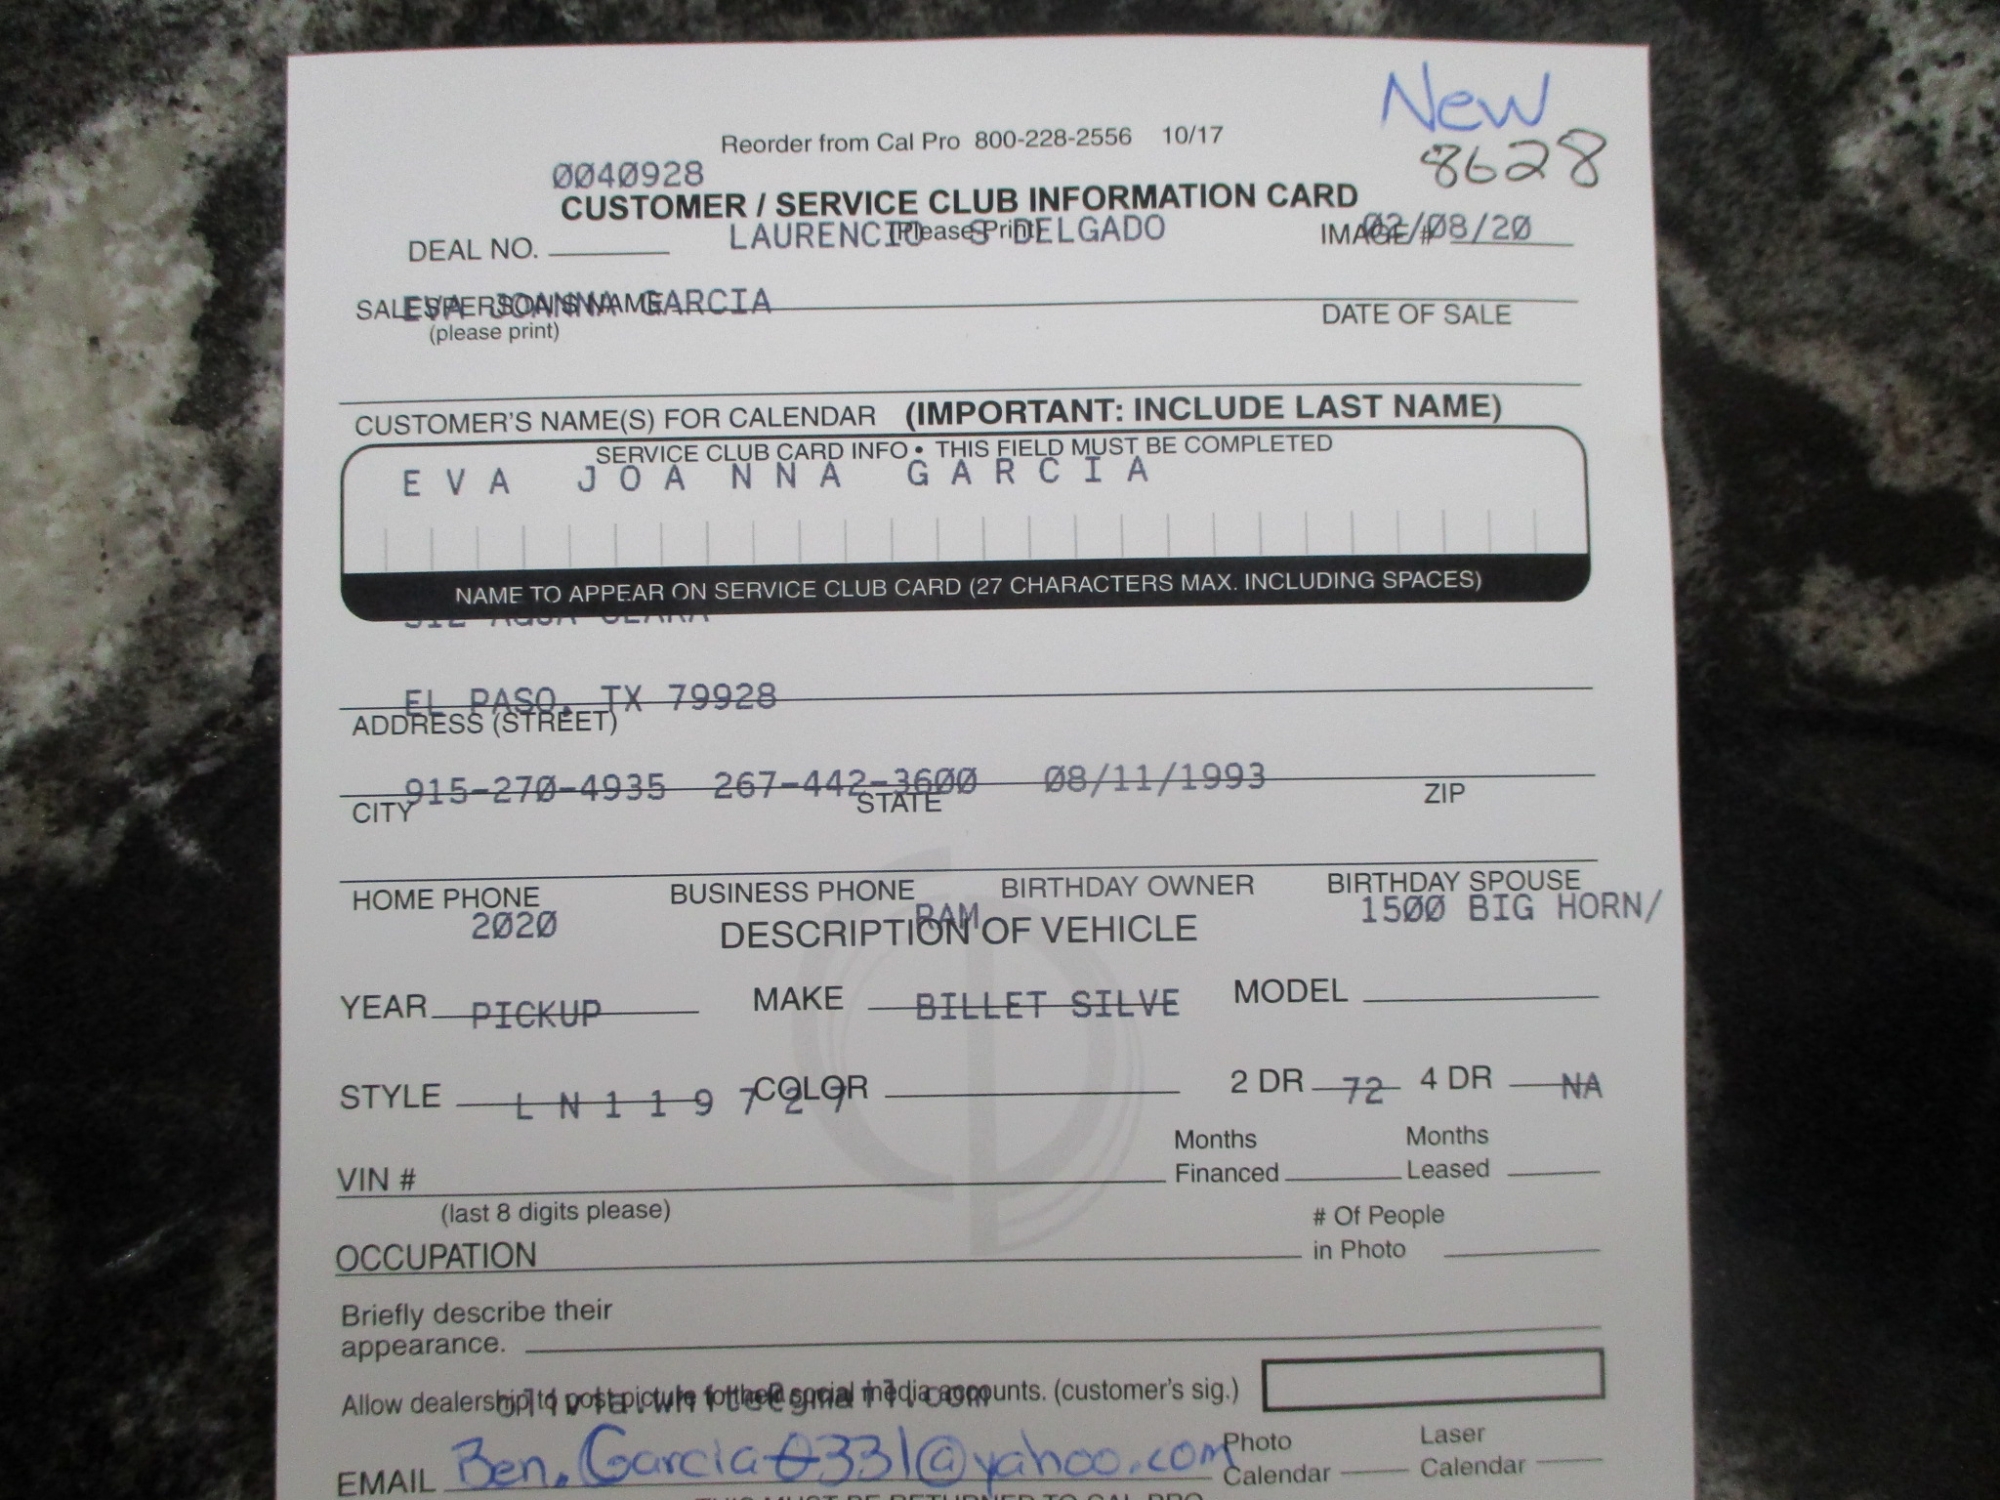 New
Reorder from Cal Pro 800-228-2556 10/17
8628
0040928
CUSTOMER / SERVICE CLUB INFORMATION CARD
(Please Print)
DEAL NO. LAURENCIO S DELGADO IMAGE # 02/08/20
SALESPERSON'S NAME EVA JOANNA GARCIA
(please print) DATE OF SALE
CUSTOMER'S NAME(S) FOR CALENDAR (IMPORTANT: INCLUDE LAST NAME)
SERVICE CLUB CARD INFO • THIS FIELD MUST BE COMPLETED
EVA JOANNA GARCIA
NAME TO APPEAR ON SERVICE CLUB CARD (27 CHARACTERS MAX. INCLUDING SPACES)
AGUA CLARA
EL PASO, TX 79928
ADDRESS (STREET)
915-270-4935 267-442-3600 08/11/1993
CITY STATE ZIP
HOME PHONE BUSINESS PHONE BIRTHDAY OWNER BIRTHDAY SPOUSE
2020 RAM 1500 BIG HORN/
DESCRIPTION OF VEHICLE
YEAR MAKE MODEL
PICKUP BILLET SILVE
STYLE COLOR 2 DR 72 4 DR NA
LN119727
Months Financed Months Leased
VIN #
(last 8 digits please)
# Of People
in Photo
OCCUPATION
Briefly describe their
appearance.
Allow dealership to post picture for their social media accounts. (customer's sig.)
EMAIL Ben.Garcia0331@yahoo.com
Photo Calendar Laser Calendar
THIS MUST BE RETURNED TO CAL PRO